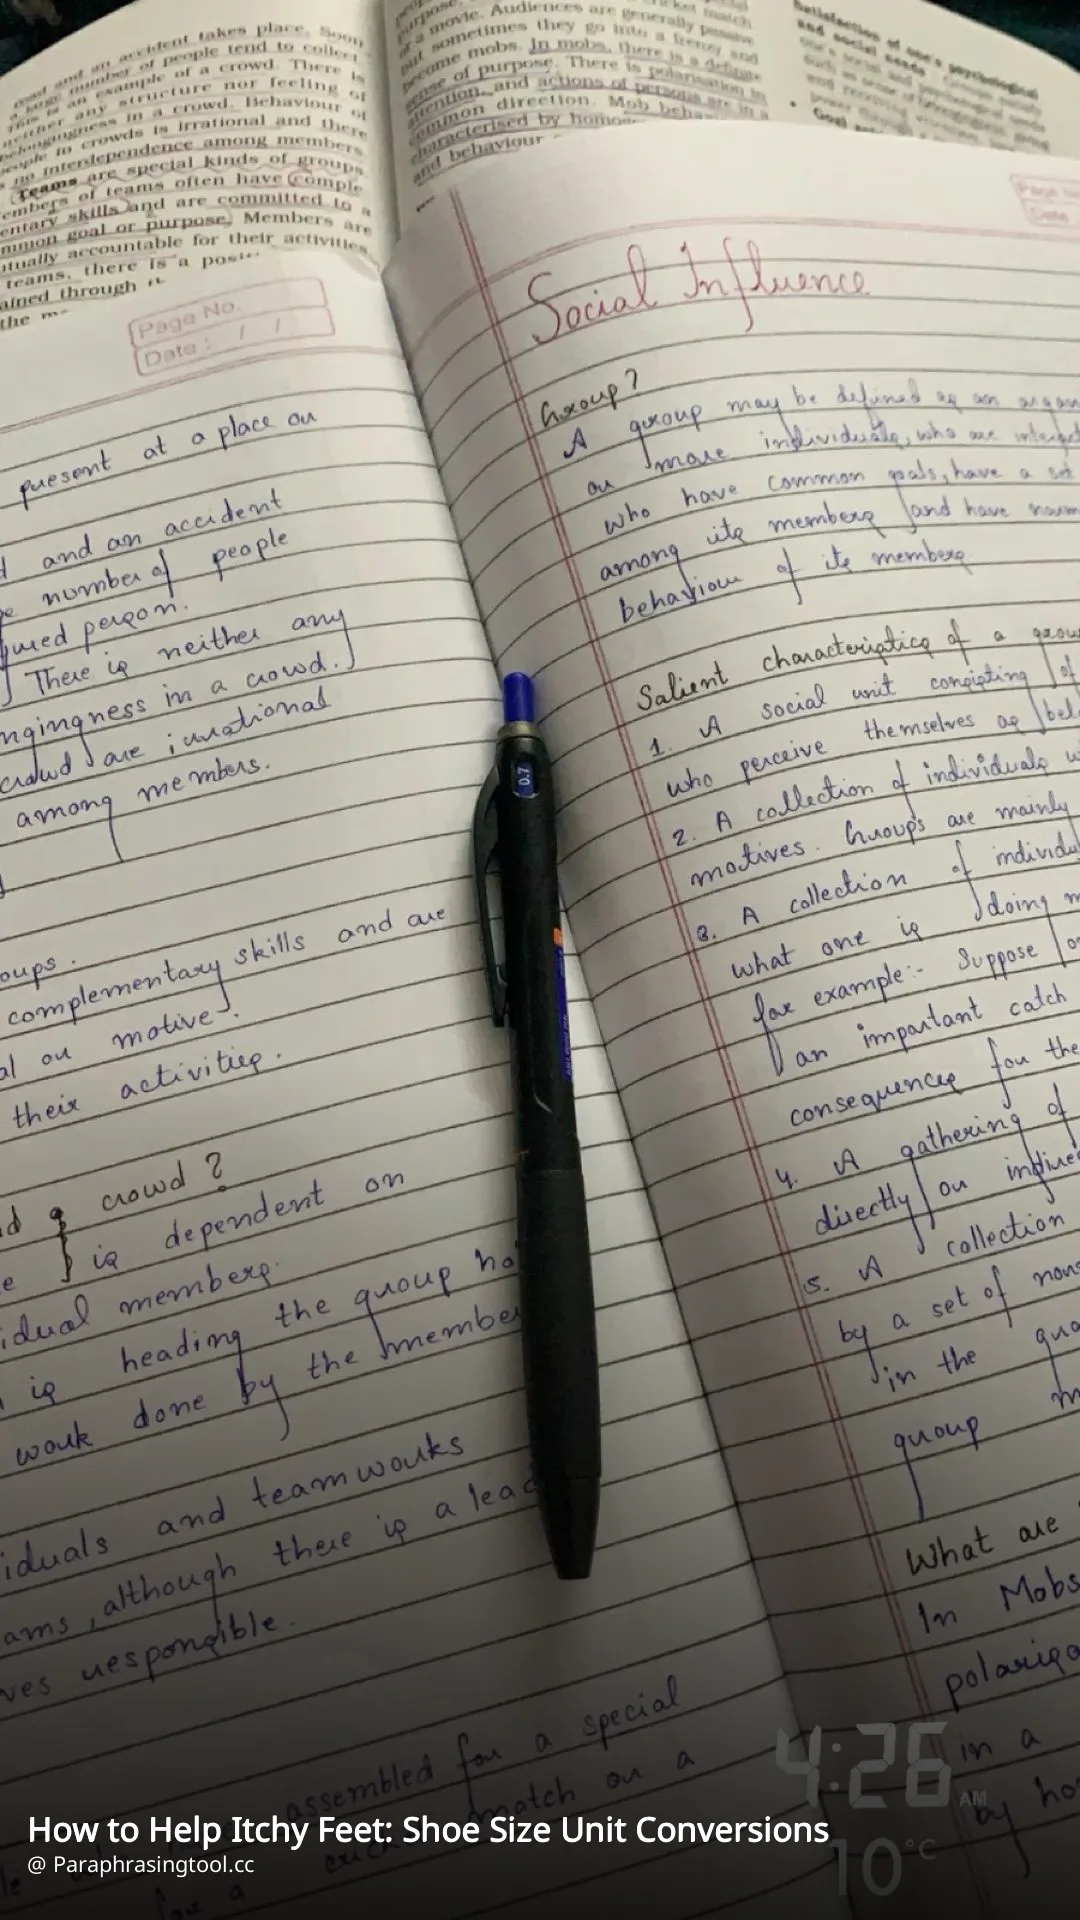 road and an accident takes place. Soon
a large number of people tend to collect.
This is an example of a crowd. There is
neither any structure nor feeling of
belongingness in a crowd. Behaviour of
people in crowds is irrational and there
is no interdependence among members
Teams are special kinds of groups
members of teams often have comple
entary skills and are committed to a
mmon goal or purpose. Members are
utually accountable for their activities
teams, there is a posit
ained through
the
of a movie. Audiences are generally passive
but sometimes they go into a frenzy and
become mobs. In mobs, there is a definite
sense of purpose. There is polarisation in
attention, and actions of persons are in a
common direction. Mob behav
characterised by homog
and behaviour
Satisfaction of one's psychological
and social needs
Page No.
Date : / /
present at a place or
d and an accident
number of people
jured person.
There is neither any
ngingness in a crowd.
crowd are irrational
among members.
oups.
complementary skills and are
al or motive.
their activities.
crowd ?
is dependent on
idual members.
is heading the group
work done by the member
iduals and teamworks
ams, although there is a lead
ves responsible.
assembled for a special
match or a
for a
Page No
Date
Social Influence
Group ?
A group may be defined as an organ
or more individuals, who are interact
who have common goals, have a set
among its members and have norm
behaviour of its members.
Salient characteristics of a grou
1. A social unit consisting of
who perceive themselves as bel
2. A collection of individuals w
motives. Groups are mainly
3. A collection of individu
what one is doing m
for example:- Suppose
an important catch
consequences for the
4. A gathering of
directly or indirec
5. A collection
by a set of norm
in the gro
group m
What are
In Mobs
polarisa
in a
by ho
4:26 AM
10°C
How to Help Itchy Feet: Shoe Size Unit Conversions
@ Paraphrasingtool.cc
0.7